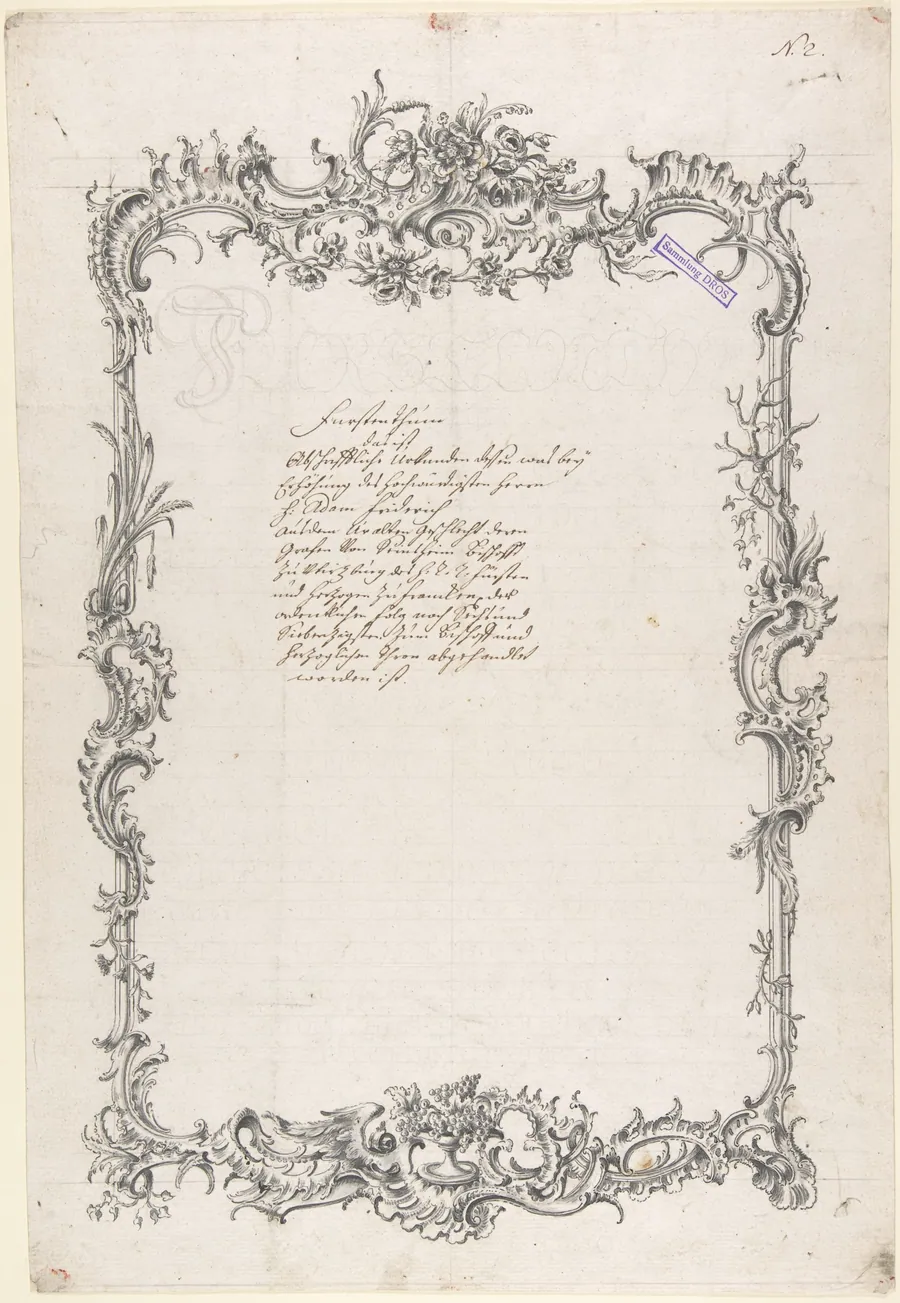 N. 2.
Sammlung DROS
Fürstenthum
das ist
Abschrifftliche Urkunden dessen was bey
Erhöhung des Hochwürdigsten Herrn
H: Adam Friderich
Aus dem Uralten Geschlecht deren
Grafen Von Seinsheim Bischoff
zu Wirtzburg des H. R. R. Fürsten
und Hertzogen zu Francken, der
ordentlichen folg nach Sechs und
Siebenzigsten zum Bischoff und
Hertzoglichen Thron abgehandlet
worden ist.